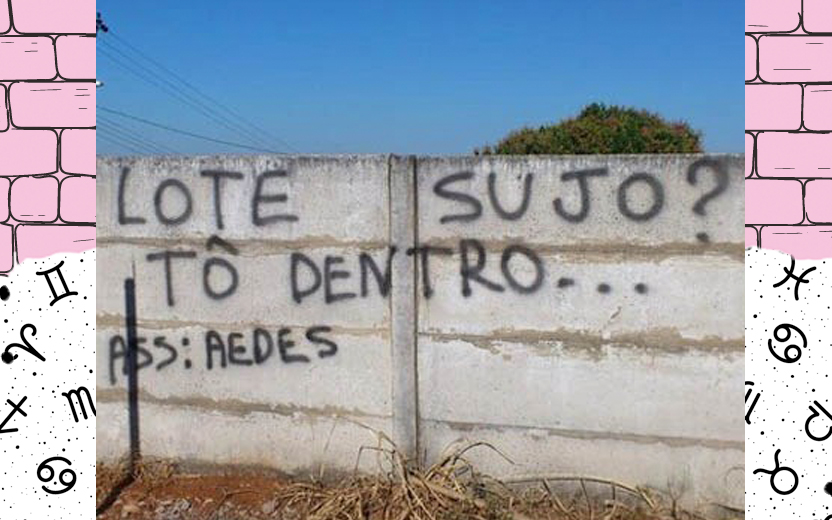 LOTE SUJO?
TÔ DENTRO...
ASS: AEDES